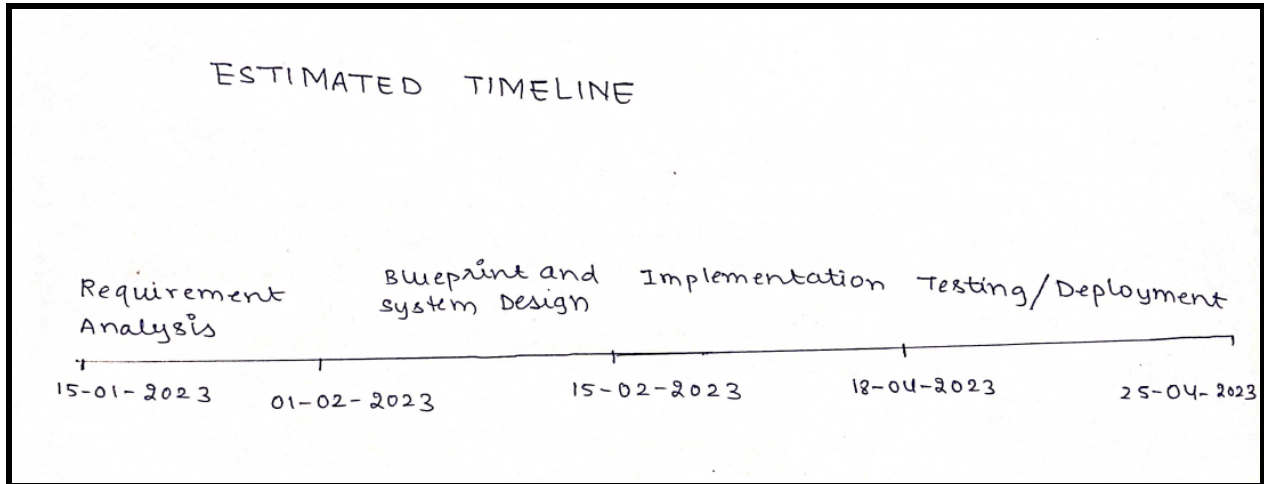 ESTIMATED TIMELINE
Requirement
Analysis
Blueprint and
System Design
Implementation
Testing/Deployment
15-01-2023
01-02-2023
15-02-2023
18-04-2023
25-04-2023